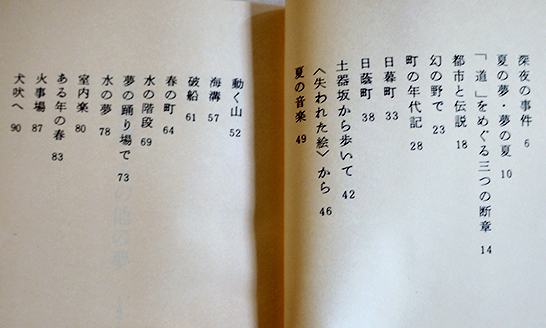 深夜の事件 6
夏の夢・夢の夏 10
「道」をめぐる三つの断章 14
都市と伝説 18
幻の野で 23
町の年代記 28
日暮町 33
日蔭町 38
土器坂から歩いて 42
〈失われた絵〉から 46
夏の音楽 49
動く山 52
海溝 57
破船 61
春の町 64
水の階段 69
夢の踊り場で 73
水の夢 78
室内楽 80
ある年の春 83
火事場 87
犬吠へ 90